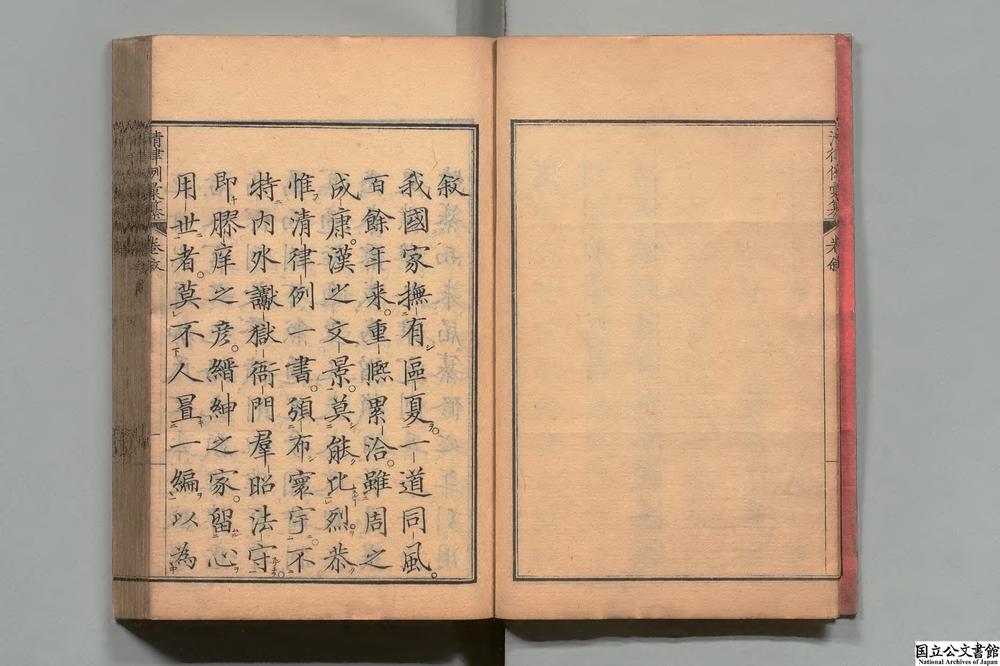 敘
我國家撫有區夏一道同風。
百餘年來。重熈累洽。雖周之
成康。漢之文景。莫能比烈。恭
惟清律例一書。頒布寰宇。不
特内外讞獄衙門羣昭法守
即膠庠之彦。縉紳之家。留心
用世者。莫不人置一編以為
清律例彙纂
卷敘
國立公文書館
National Archives of Japan